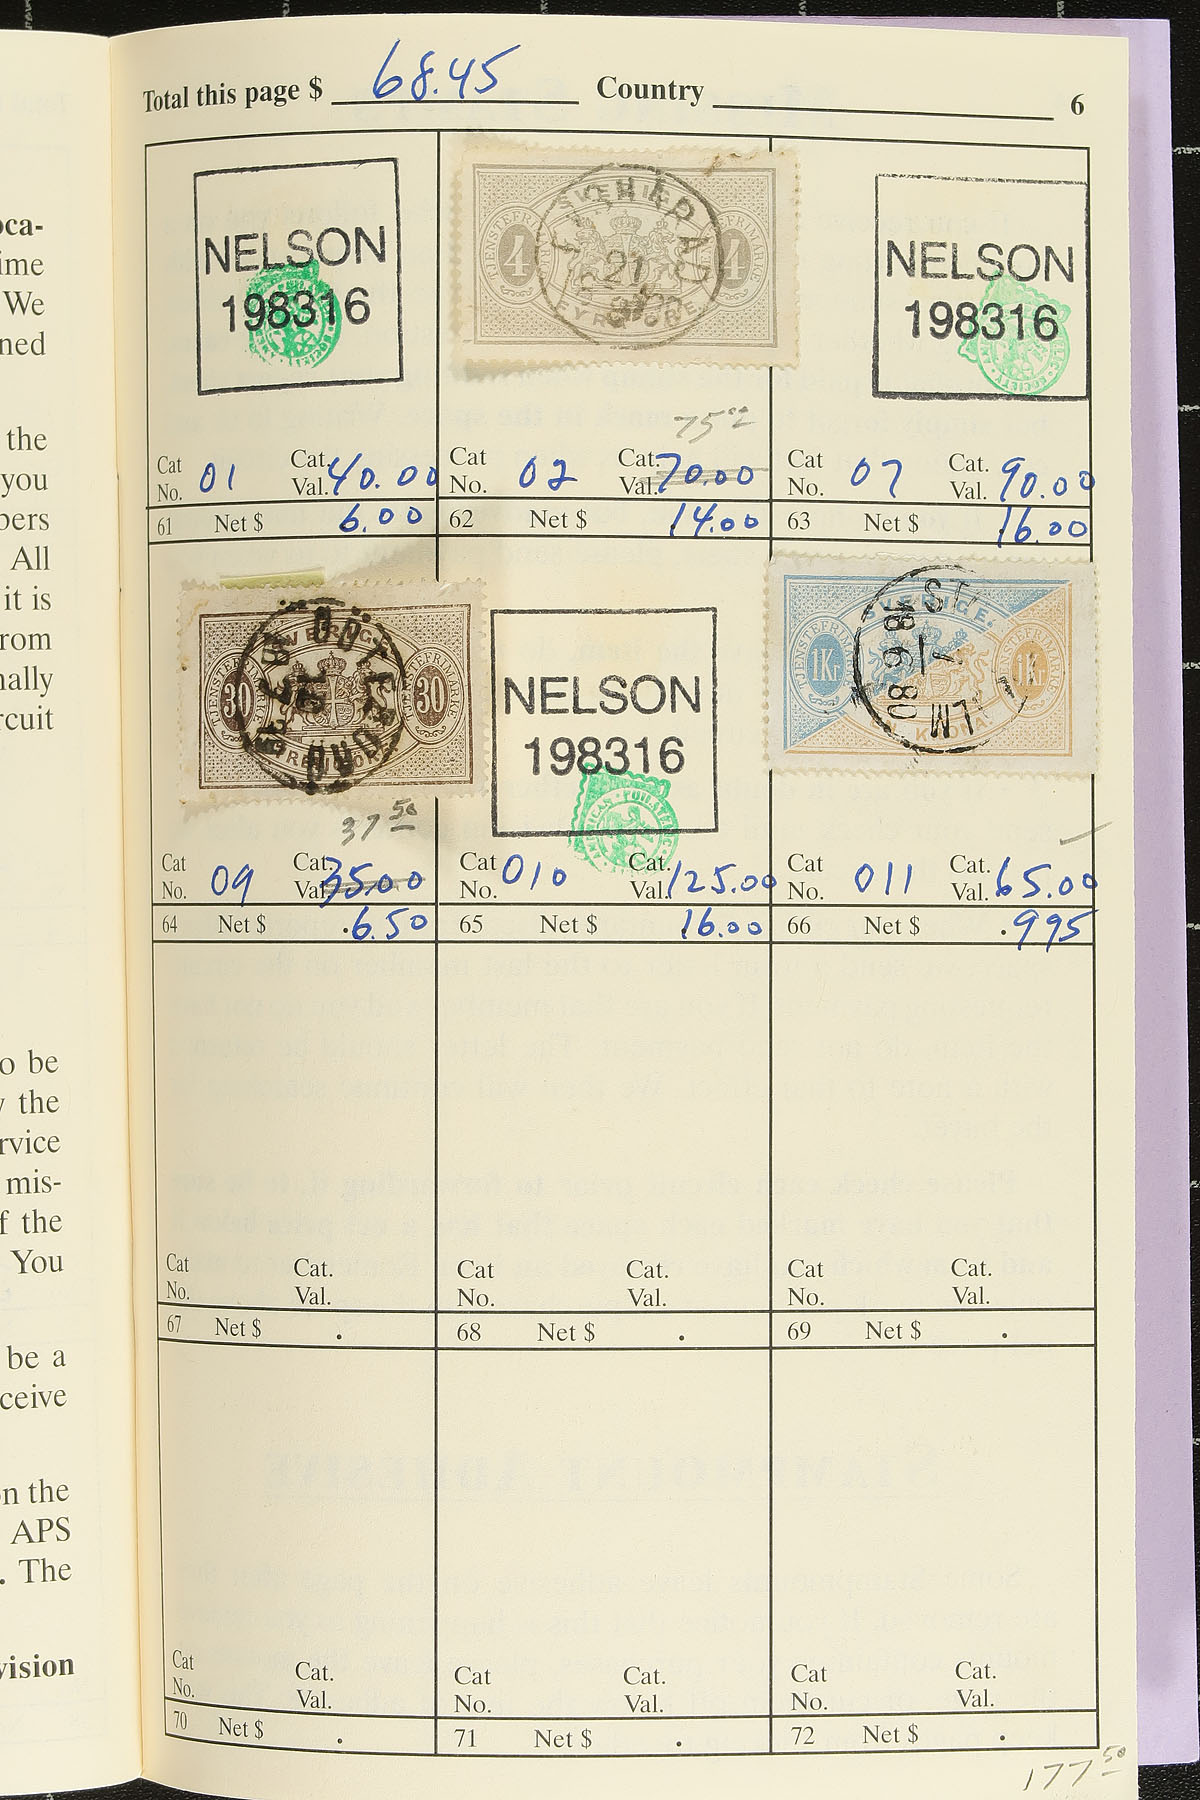 Total this page $ 68.45 Country 6
NELSON
198316
SVERIGE
TJENSTEFRIMARKE
4
4
21
NELSON
198316
75.00
Cat No. O1 Cat. Val. 40.00
61 Net $ 6.00
Cat No. O2 Cat. Val. 70.00
62 Net $ 14.00
Cat No. O7 Cat. Val. 90.00
63 Net $ 16.00
SVERIGE
30
30
NELSON
198316
AMERICAN PHILATELIC
SVERIGE
TJENSTEFRIMARKE
1Kr
1Kr
18 6 80
37 50
Cat No. O9 Cat. Val. 35.00
64 Net $ .6.50
Cat No. O10 Cat. Val. 125.00
65 Net $ 16.00
Cat No. O11 Cat. Val. 65.00
66 Net $ .995
Cat No. Cat. Val.
67 Net $ .
Cat No. Cat. Val.
68 Net $ .
Cat No. Cat. Val.
69 Net $ .
Cat No. Cat. Val.
70 Net $ .
Cat No. Cat. Val.
71 Net $ .
Cat No. Cat. Val.
72 Net $ .
177 50
oca-
ime
We
ned
the
you
bers
All
it is
rom
nally
rcuit
o be
y the
rvice
mis-
f the
You
be a
ceive
on the
APS
. The
vision